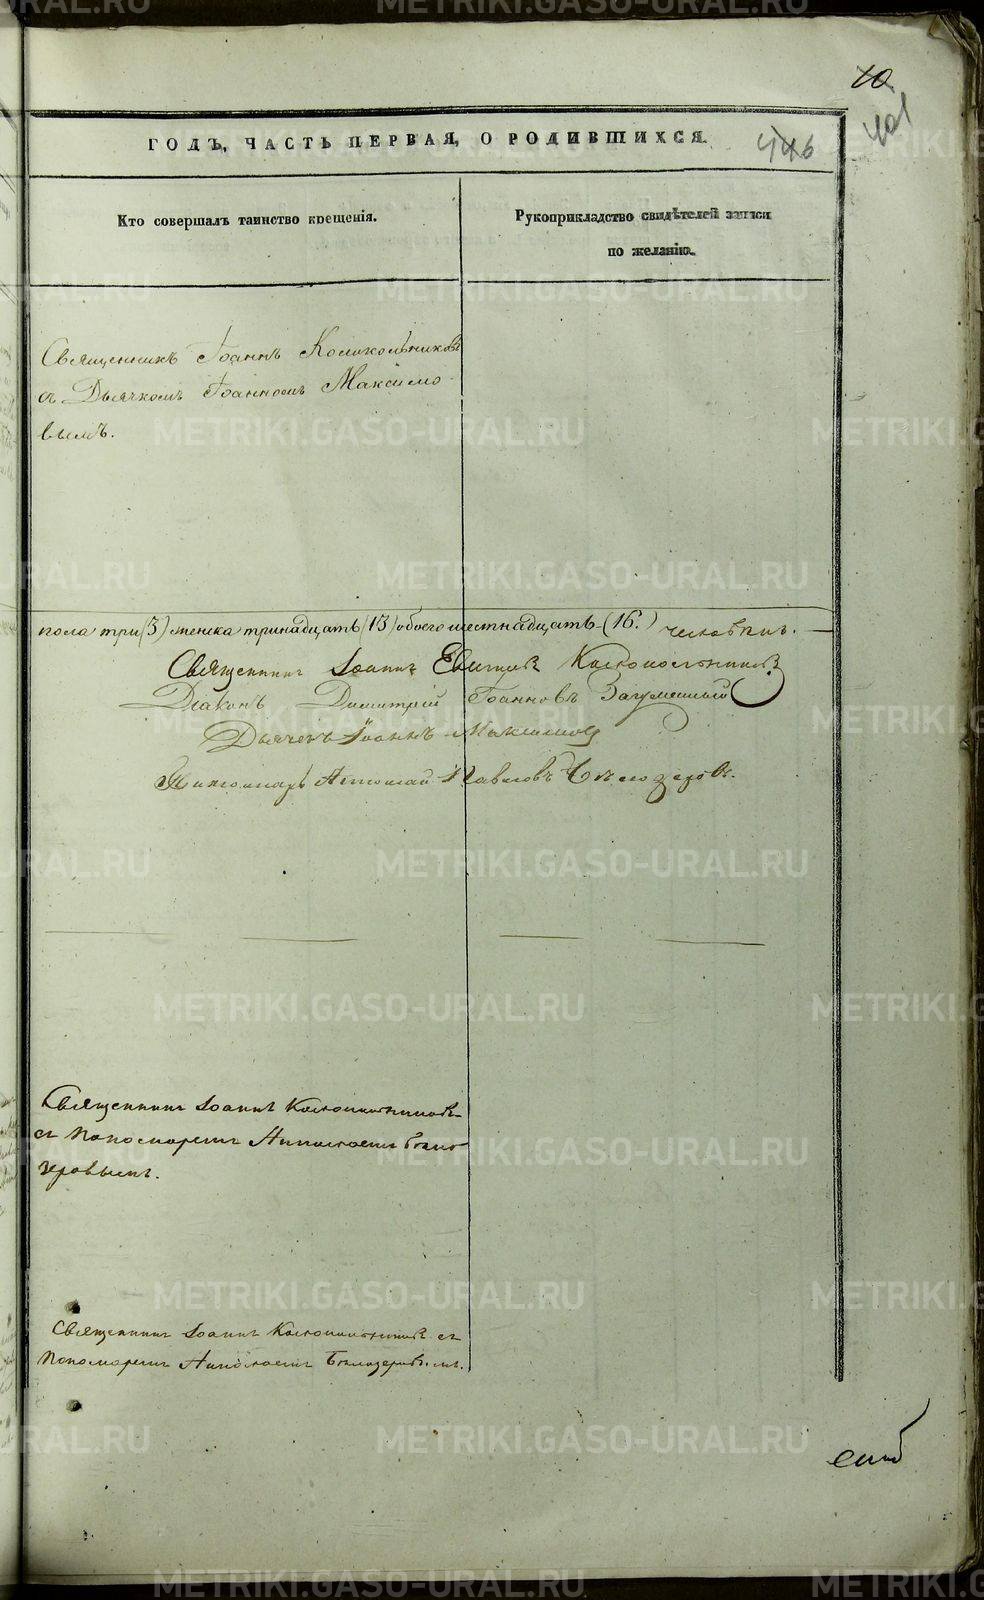 10.
401
446
ГОДЪ, ЧАСТЬ ПЕРВАЯ, О РОДИВШИХСЯ.
Кто совершалъ таинство крещенія.
Рукоприкладство свидѣтелей записи
по желанію.
Священникъ Іоаннъ Колокольниковъ
съ Дьячкомъ Іоанномъ Максимо-
вымъ.
пола три (3) женска тринадцать (13) обоего шестнадцать (16.) человѣкъ.
Священникъ Іоаннъ Колокольниковъ
Діаконъ Димитрій Іоанновъ
Дьячекъ Іоаннъ Максимовъ
Пономарь Павловъ Бѣлозеровъ.
Священникъ Іоаннъ Колокольниковъ
съ Пономаремъ Николаемъ Бѣло-
зеровымъ.
Священникъ Іоаннъ Колокольниковъ съ
Пономаремъ Николаемъ Бѣлозеровымъ.
METRIKI.GASO-URAL.RU